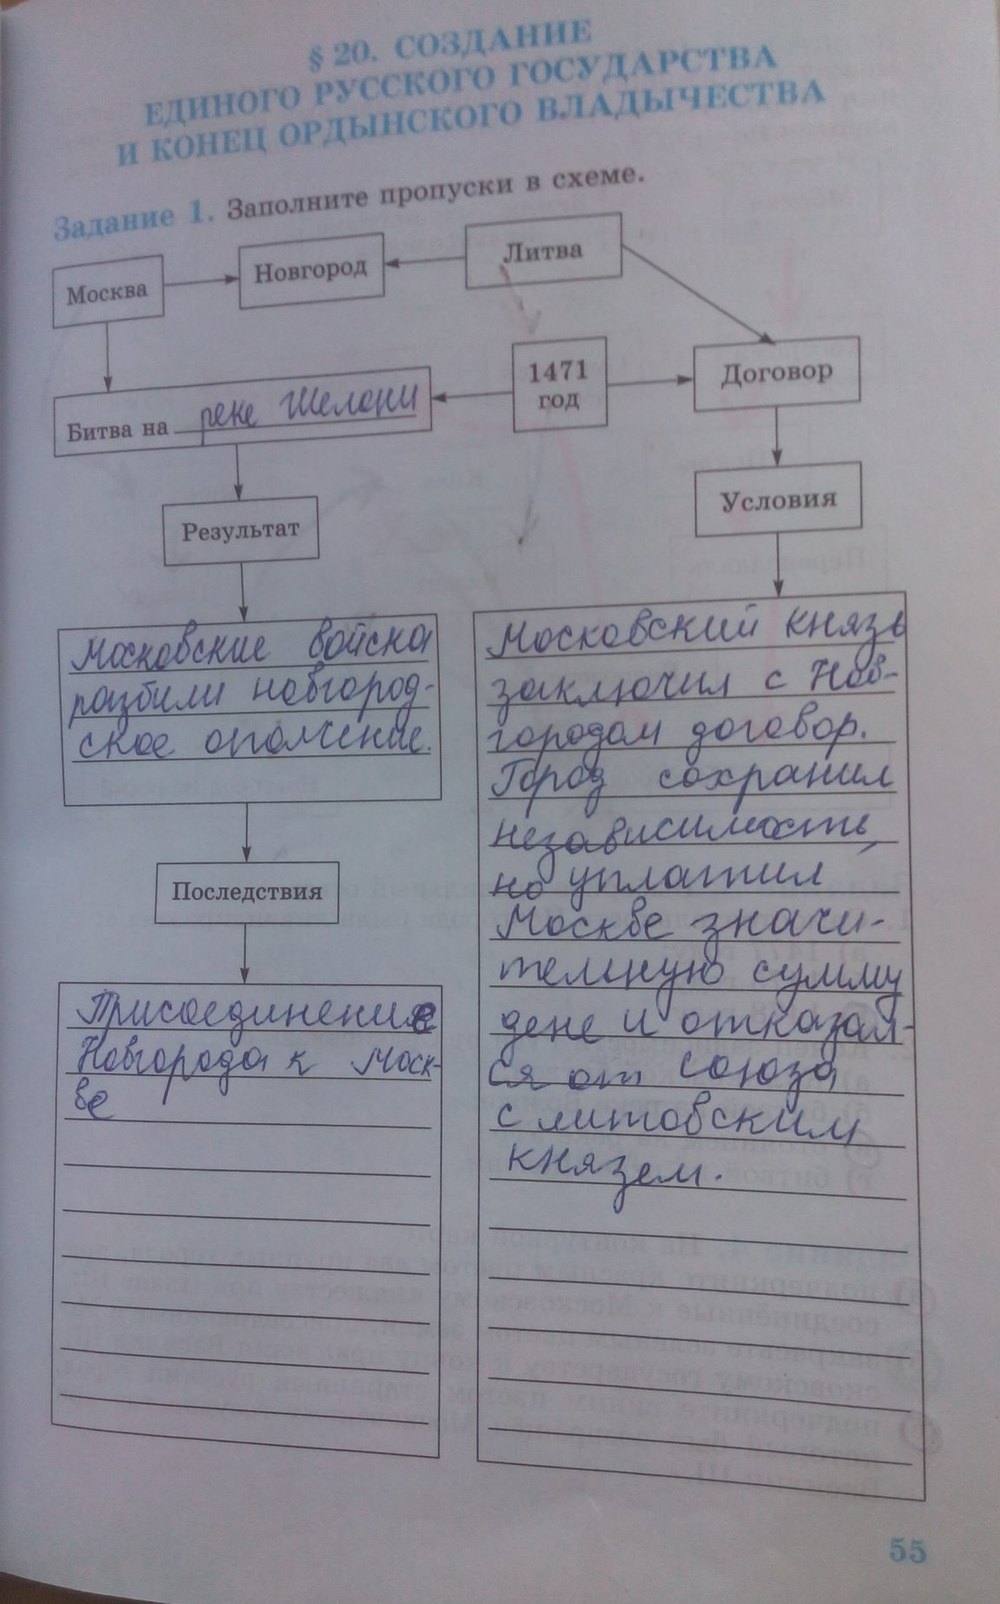 § 20. СОЗДАНИЕ
ЕДИНОГО РУССКОГО ГОСУДАРСТВА
И КОНЕЦ ОРДЫНСКОГО ВЛАДЫЧЕСТВА
Задание 1. Заполните пропуски в схеме.
Москва
Новгород
Литва
1471
год
Договор
Битва на реке Шелони
Результат
Условия
Московские войска
разбили новгород-
ское ополчение.
Последствия
Присоединение
Новгорода к Моск-
ве
Московский князь
заключил с Нов-
городом договор.
Город сохранил
независимость,
но уплатил
Москве значи-
тельную сумму
дене и отказал-
ся от союза
с литовским
князем.
55